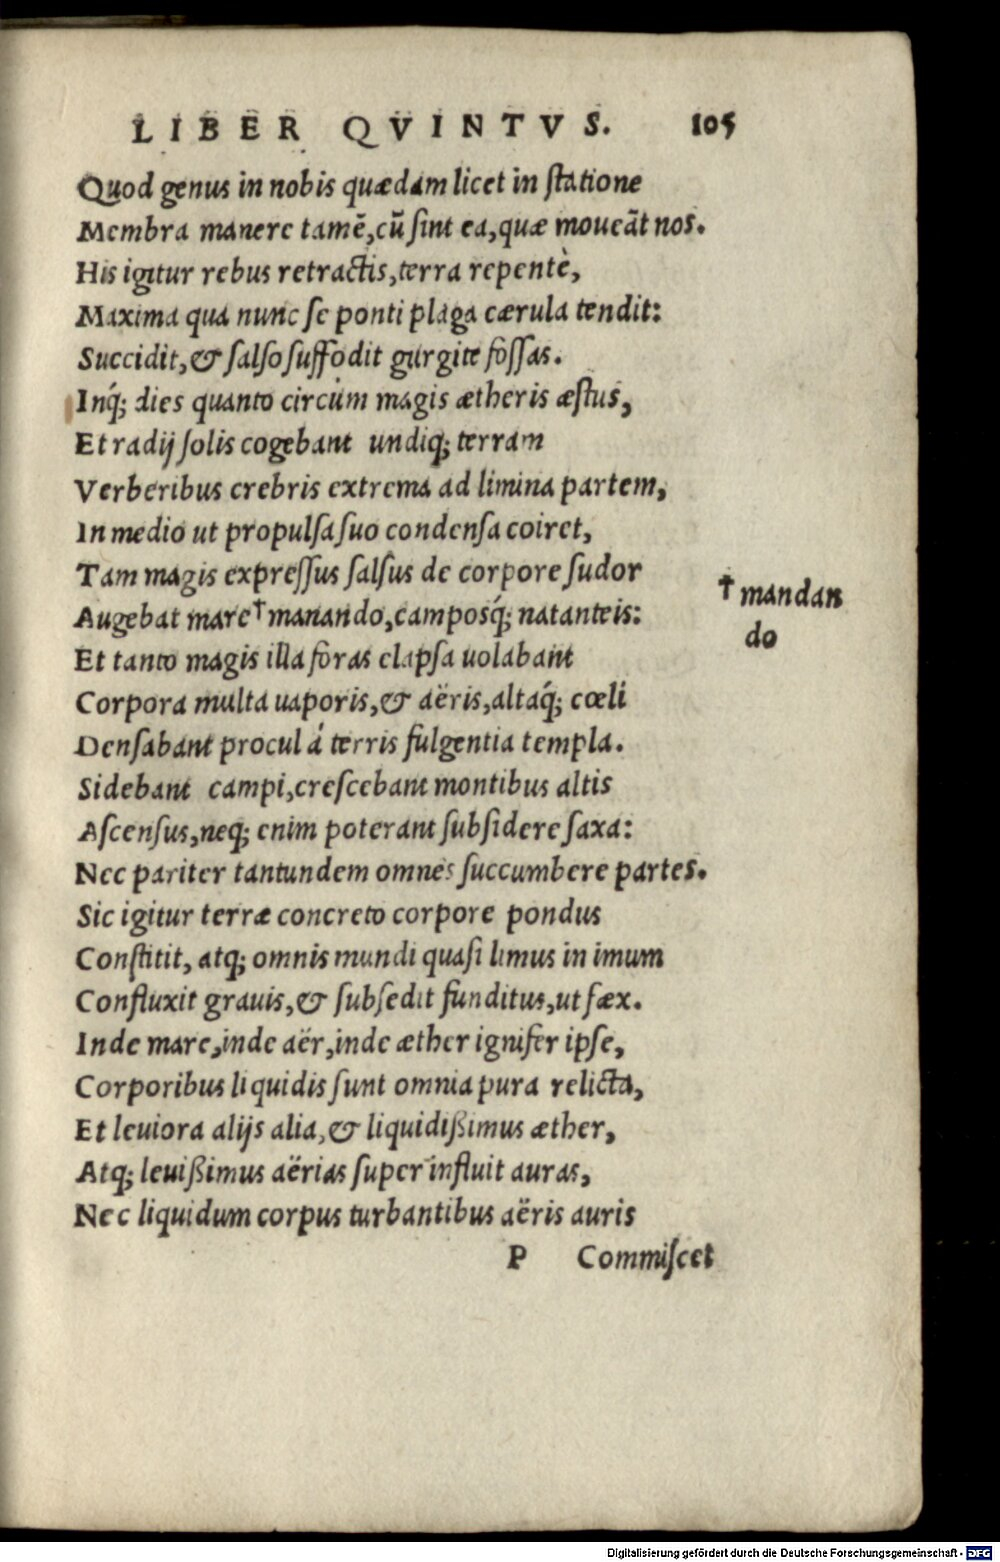 LIBER QVINTVS. 105
Quod genus in nobis quædam licet in ſtatione
Membra manere tamē, cū ſint ea, quæ moueāt nos.
His igitur rebus retractis, terra repentè,
Maxima qua nunc ſe ponti plaga cærula tendit:
Succidit, & ſalſo ſuffodit gurgite foſſas.
Inq́; dies quanto circùm magis ætheris æſtus,
Et radij ſolis cogebant undiq; terram
Verberibus crebris extrema ad limina partem,
In medio ut propulſa ſuo condenſa coiret,
Tam magis expreſſus ſalſus de corpore ſudor
Augebat mare† manando, camposq́; natanteis:
† mandan
do
Et tanto magis illa foras elapſa uolabant
Corpora multa uaporis, & aëris, altaq́; cœli
Denſabant procul á terris fulgentia templa.
Sidebant campi, creſcebant montibus altis
Aſcenſus, neq; enim poterant ſubſidere ſaxa:
Nec pariter tantundem omnes ſuccumbere partes.
Sic igitur terræ concreto corpore pondus
Conſtitit, atq; omnis mundi quaſi limus in imum
Confluxit grauis, & ſubſedit funditus, ut fæx.
Inde mare, inde aër, inde æther ignifer ipſe,
Corporibus liquidis ſunt omnia pura relicta,
Et leuiora alijs alia, & liquidißimus æther,
Atq; leuißimus aërias ſuper influit auras,
Nec liquidum corpus turbantibus aëris auris
P Commiſcet
Digitalisierung gefördert durch die Deutsche Forschungsgemeinschaft - DFG